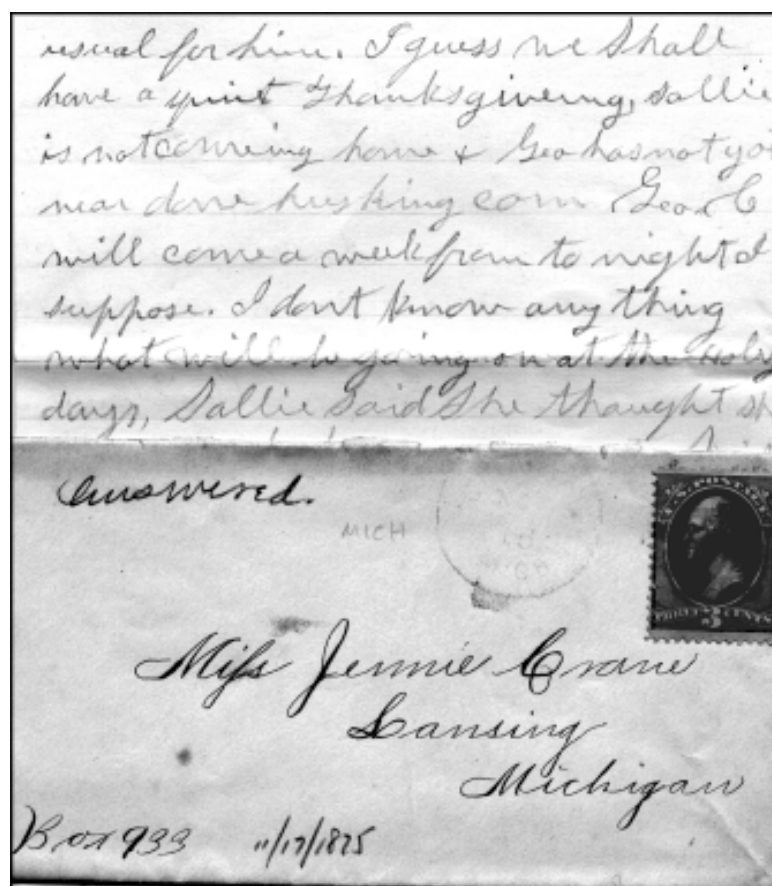 usual for him. I guess we shall
have a quiet Thanksgiveing, Sallie
is not comeing home & Geo has not
near done husking corn Geo. C
will come a week from to night I
suppose. I dont know any thing
what will be going on at the Holy
days, Sallie said she thought sh
Answered.
MICH
U.S. POSTAGE
THREE 3 CENTS
Miss Jennie Crane
Lansing
Michigan
Box 933 11/17/1875